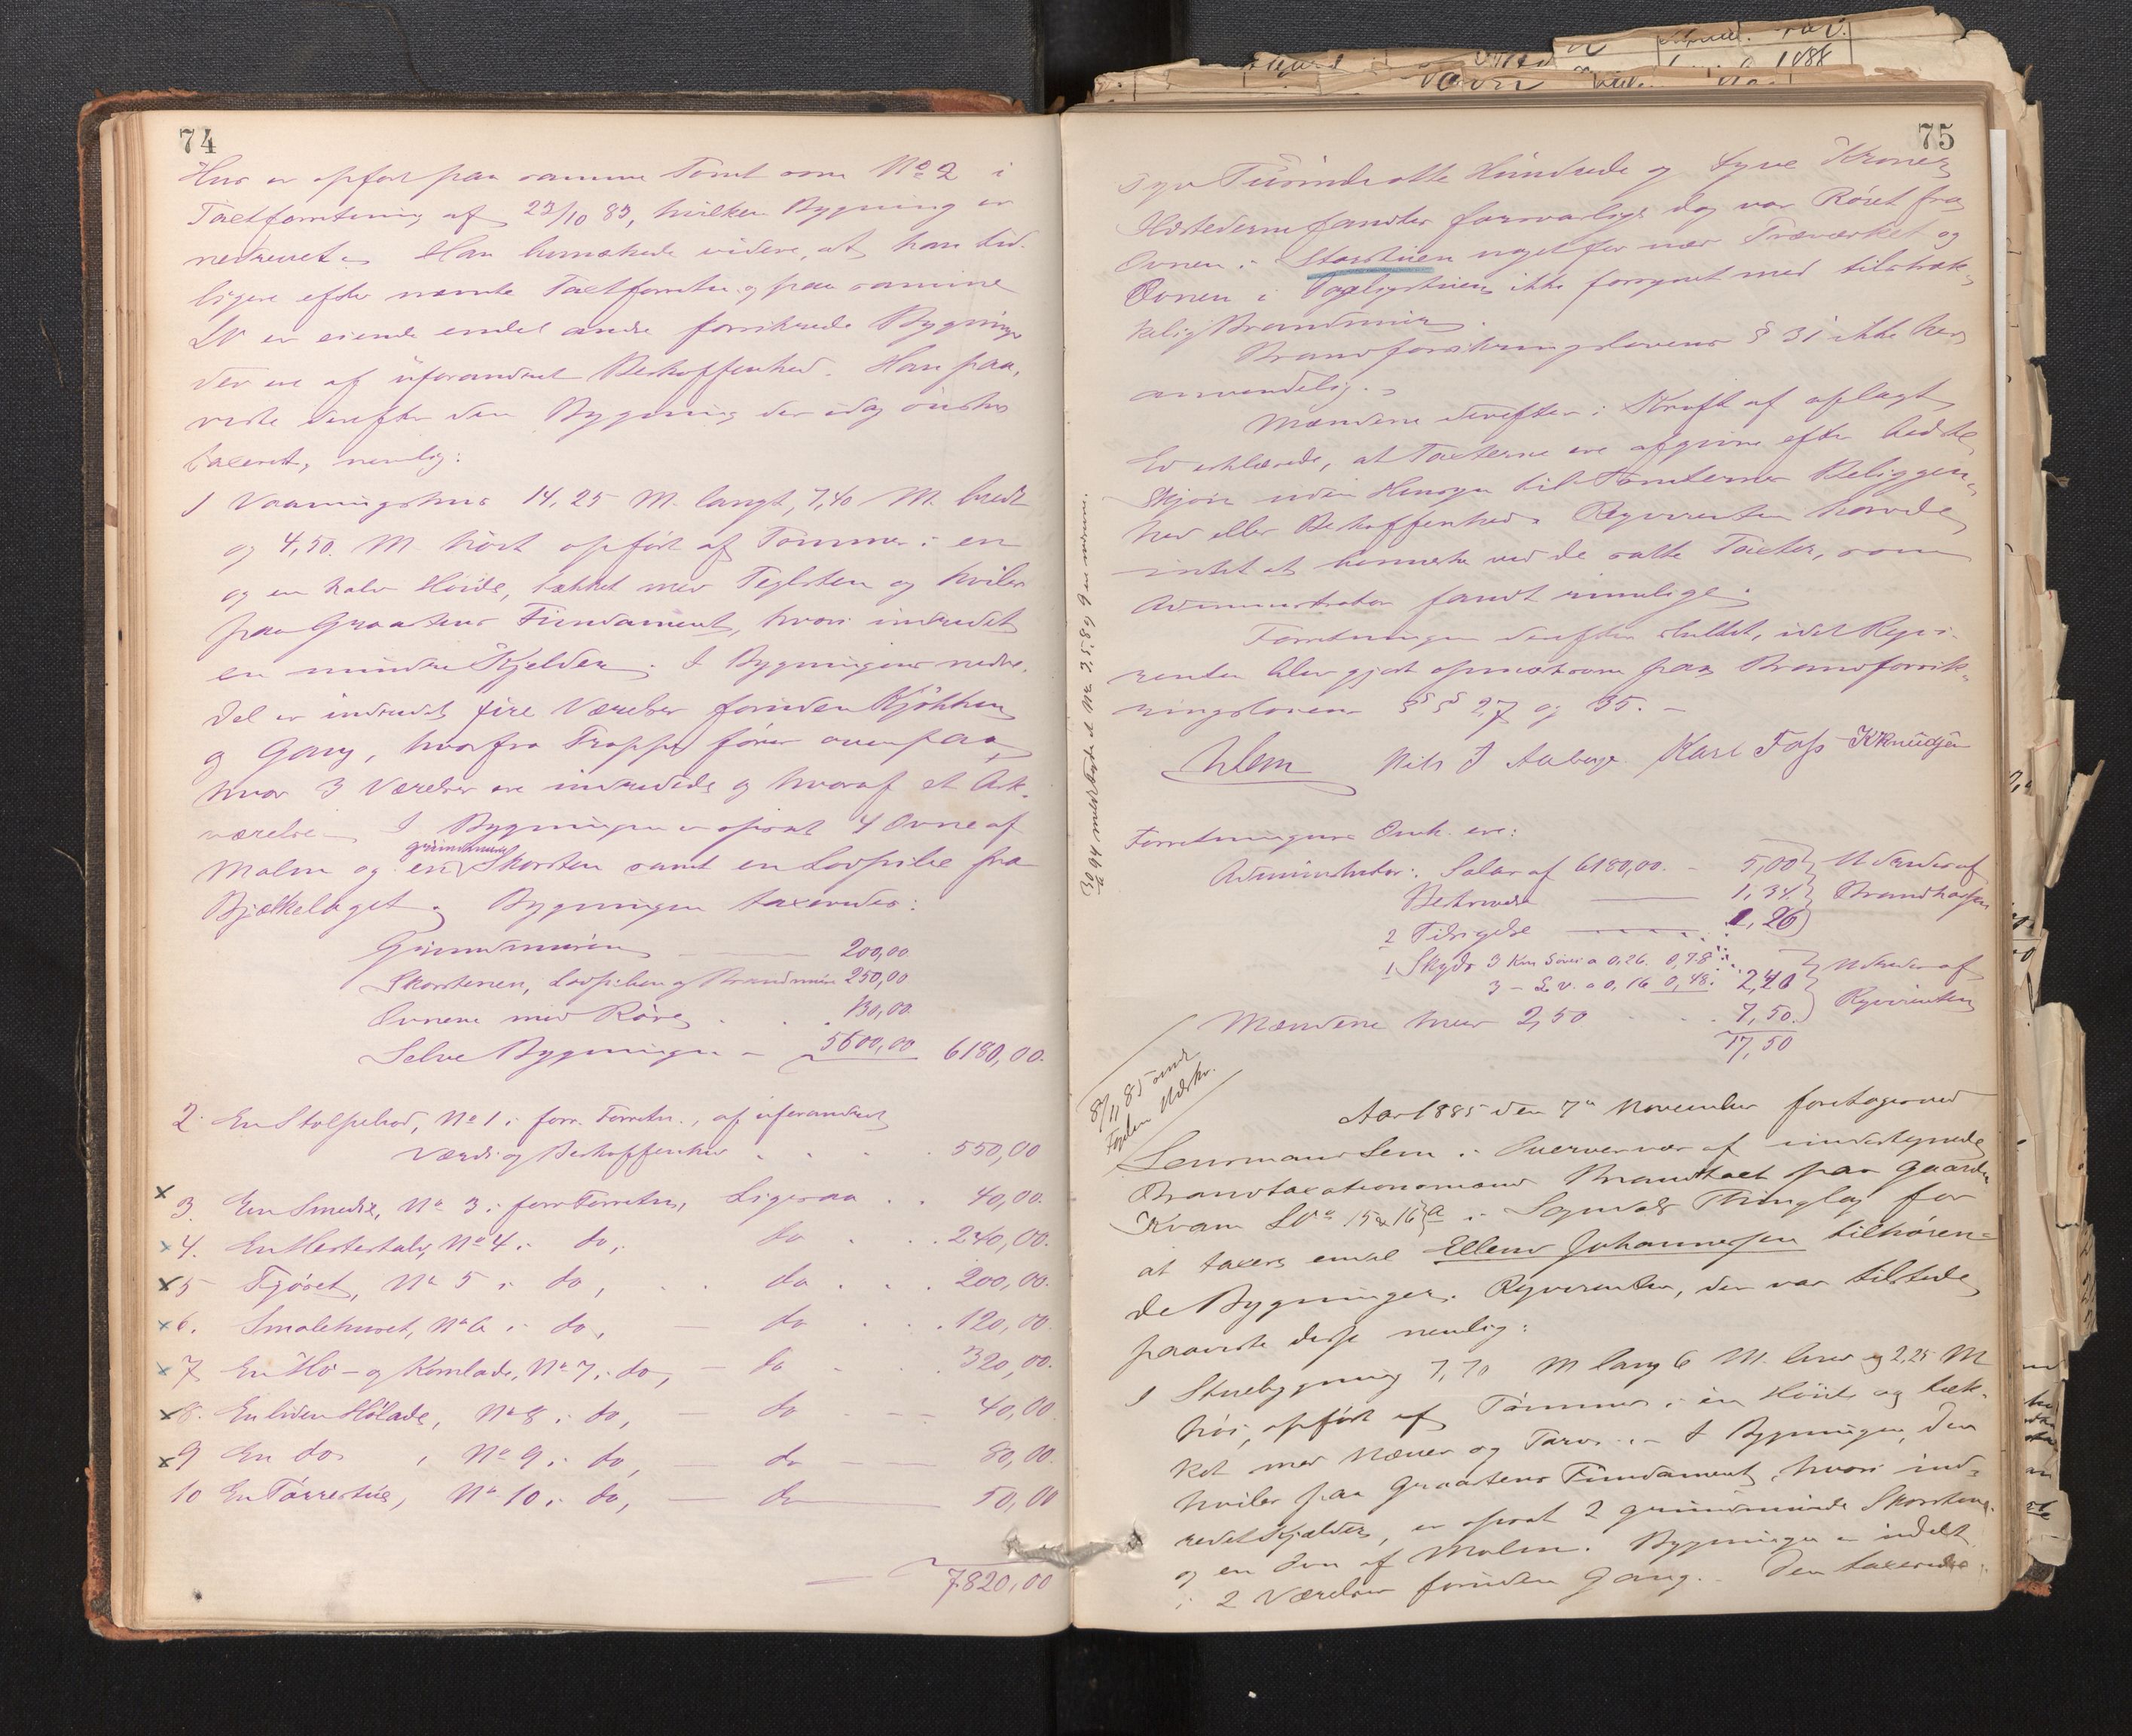 74
Hus er opført paa samme Tomt som No 2 i
Taxtforretning af 23/10 83, hvilken Bygning er
nedrevet. Han bemærkede videre, at han tid-
ligere efter nævnte Taxtforretn. og paa samme
LN er eiende endel andre forsikrede Bygninger
der ere af uforandret Beskaffenhed. Han paa-
viste derefter den Bygning der idag ønskes
taxeret, nemlig:
1 Vaaningshus 14,25 M. langt, 7,40 M. bredt
og 4,50. M høit opført af Tømmer i en
og en halv Høide, tækket med Teglsten og hviler
paa Graastens Fundament, hvori indredet
en mindre Kjelder. I Bygningens nedre
Del er indredet fire Værelser foruden Kjøkken
og Gang, hvorfra Trappe fører ovenpaa,
hvor 3 Værelser ere indredede og hvoraf et Ark-
værelse. I Bygningen er opsat 4 Ovne af
Malm og en grundmuret Skorsten samt en Lodpibe fra
Bjælkelaget. Bygningen taxeredes:
Grundmuren 200,00
Skorstenen, Lodpiben og Brandmuren 250,00
Ovnene med Rør 130,00
Selve Bygningen 5600,00 6180,00.
2. En Stolpebod, No 1 i forr. Forretn., af uforandret
Værdi og Beskaffenhed 550,00
x 3. En Smedie, No 3 i forr Forretn, Ligesaa 40,00.
x 4. En Hestestald, No 4 i do, do 240,00.
x 5 Fjøset, No 5 i do, do 200,00.
x 6. Smalehuset, No 6 i do, do 120,00.
x 7 En Hø- og Kornlade, No 7 i do, do 320,00.
x 8. En liden Hølade, No 8 i do, do 40,00
x 9 En do, No 9 i do, do 80,00.
10 En Tørrestue, No 10 i do, do 50,00
7820,00
75
Syv Tusinde otte Hundrede og tyve Kroner
Ildstederne fandtes forsvarlige dog var Røret fra
Ovnen i Storstuen noget for nær Træværket og
Ovnen i Dagligstuen ikke forsynet med tilstræk-
kelig Brandmur.
Brandforsikringslovens § 31 ikke her
anvendelig.
Mændene derefter i Kraft af aflagt
Ed erklærede, at Taxterne ere afgivne efter bedste
Skjøn uden Hensyn til Tomternes Beliggen-
hed eller Beskaffenhed. Reqvirenten havde
intet at bemærke ved de satte Taxter, som
Administrator fandt rimelige.
Forretningen derefter sluttet, idet Reqvi-
renten blev gjort opmærksom paa Brandforsik-
ringslovens §§ 27 og 35.
Lem Nils J Aaberge Karl Foss K Knudsen
Forretningens Omk. ere:
Administrator: Salær af 6180,00. 5,00 } Udredes af
Beskrivelse 1,34 } Brandkassen
2 Tilsigelse 1,26
1 Skyds 3 Km Søvei a 0,26. 0,78
3 - L.V. a 0,16 0,48. 2,46 } Udredes af
Mændene hver 2,50 7,50. } Reqvirenten
17,50
8/11 85 sendt
Fogden Udskr.
Aar 1885 den 7de November foretoges ved
Lensmand Lem i Overvær af undertegnede
Brandtaxationsmænd Brandtaxt paa Gaarden
Kvam LNo 15 & 16 a i Sogndals Thinglag for
at taxere endel Ellend Johannessen tilhøren-
de Bygninger. Reqvirenten, der var tilstede
paaviste disse nemlig:
1 Stuebygning 7,70 M lang 6 M. bred og 2,25 M
høi, opført af Tømmer i en Høide og tæk-
ket med Næver og Torv. I Bygningen, der
hviler paa Graastens Fundament, hvori ind-
redet Kjælder, er opsat 2 grundmurede Skorstene
og en Ovn af Malm. Bygningen er indelt
i 2 Værelser foruden Gang. Den taxeredes: